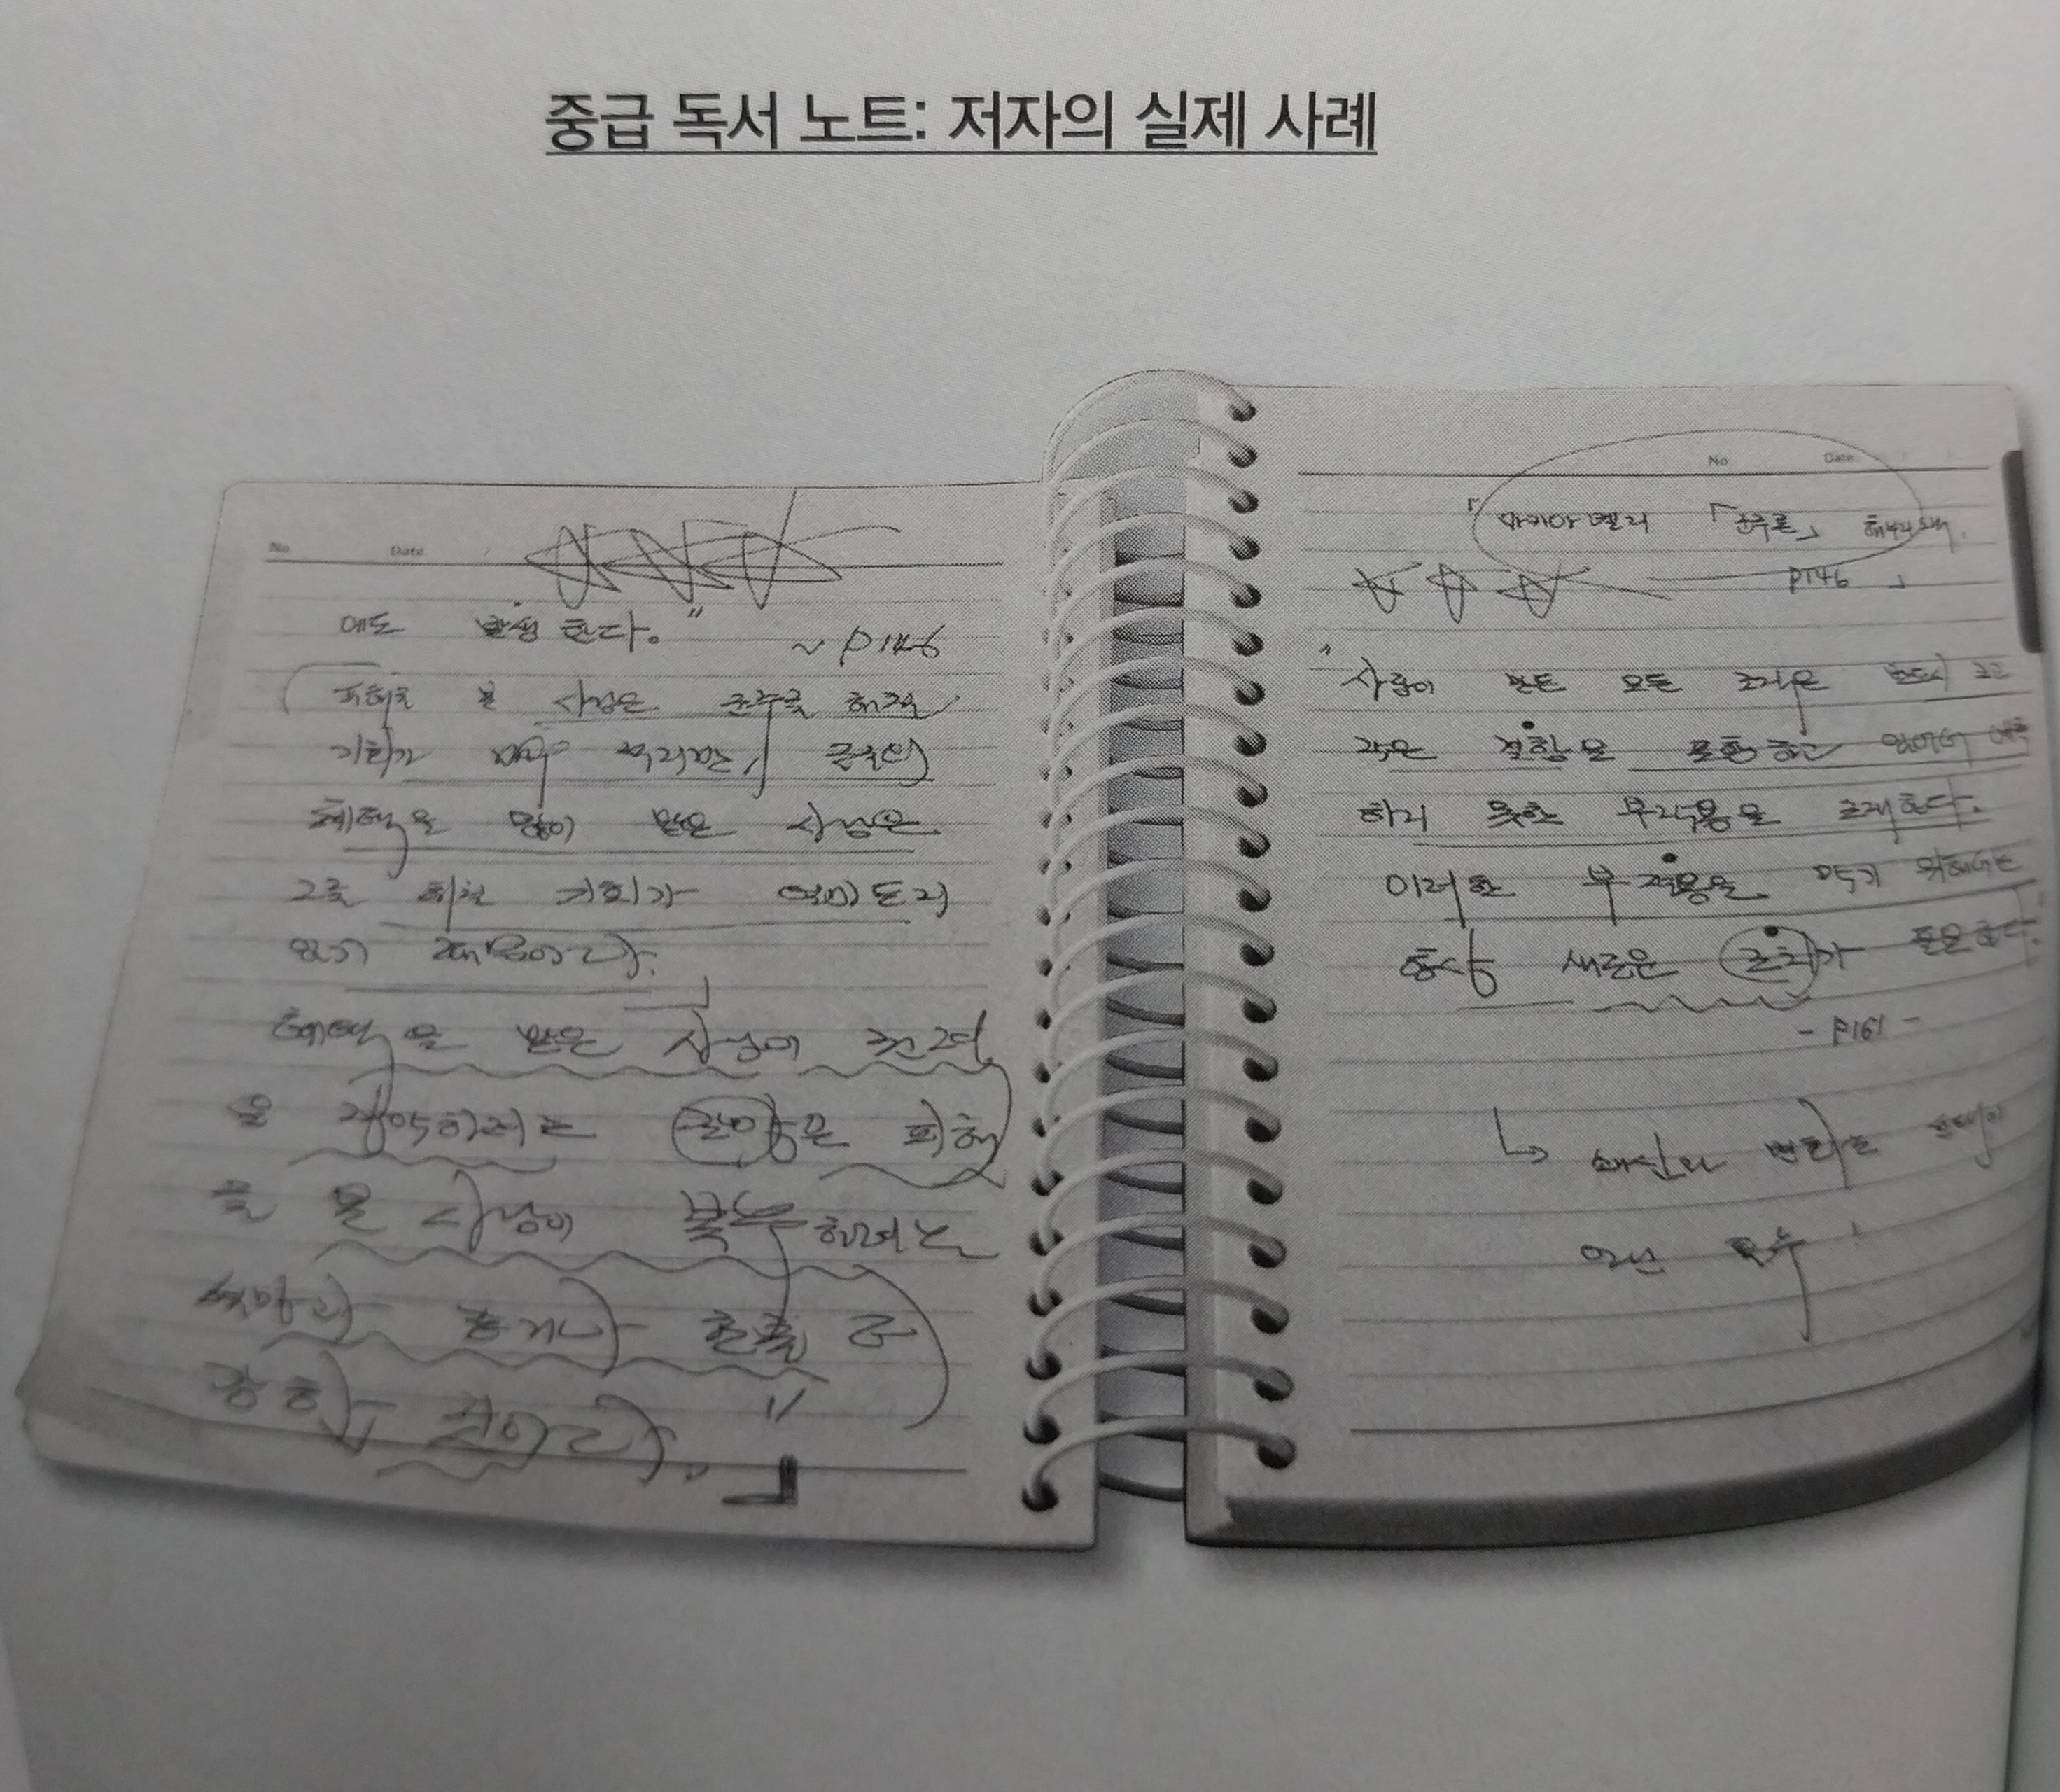 중급 독서 노트: 저자의 실제 사례
No Date
에도 발생한다."
~ P146
피해를 본 사람은 군주를 해칠
기회가 매우 적지만, 군주의
혜택을 많이 받은 사람은
그를 해칠 기회가 얼마든지
있기 때문이다.
혜택을 받은 사람이 권력
을 장악하려는 갈망은 피해
를 본 사람이 복수하려는
욕망과 같거나 혹은 더
강하 것이다."
No Date
「마키아벨리 「군주론」
P146 」
"사람이 만든 모든 조직은 반드시
작은 결함을 포함하고 있어서
하지 못한 부작용을 초래한다.
이러한 부작용을 막기 위해서는
항상 새로운 조치가 필요하다.
- P161 -
쇄신과 변화는